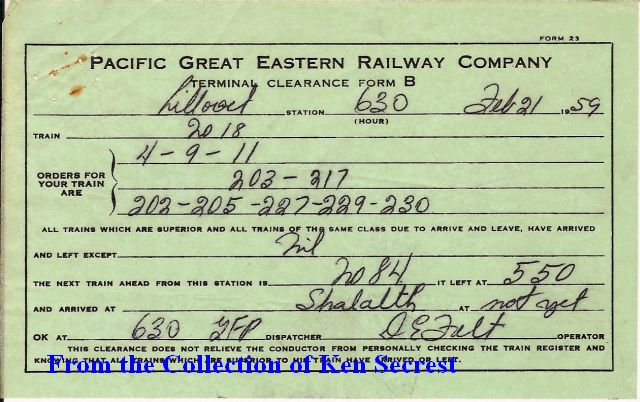 FORM 23
PACIFIC GREAT EASTERN RAILWAY COMPANY
TERMINAL CLEARANCE FORM B
Lillooet STATION 630 Feb 21 1959
(HOUR)
TRAIN No 18
ORDERS FOR YOUR TRAIN ARE
4-9-11
203-217
202-205-227-229-230
ALL TRAINS WHICH ARE SUPERIOR AND ALL TRAINS OF THE SAME CLASS DUE TO ARRIVE AND LEAVE, HAVE ARRIVED
AND LEFT EXCEPT Nil
THE NEXT TRAIN AHEAD FROM THIS STATION IS No 84 IT LEFT AT 550
AND ARRIVED AT Shalalth AT not yet
OK AT 630 DISPATCHER OPERATOR
THIS CLEARANCE DOES NOT RELIEVE THE CONDUCTOR FROM PERSONALLY CHECKING THE TRAIN REGISTER AND
KNOWING THAT ALL TRAINS WHICH ARE SUPERIOR TO HIS TRAIN HAVE ARRIVED OR LEFT.
From the Collection of Ken Secrest